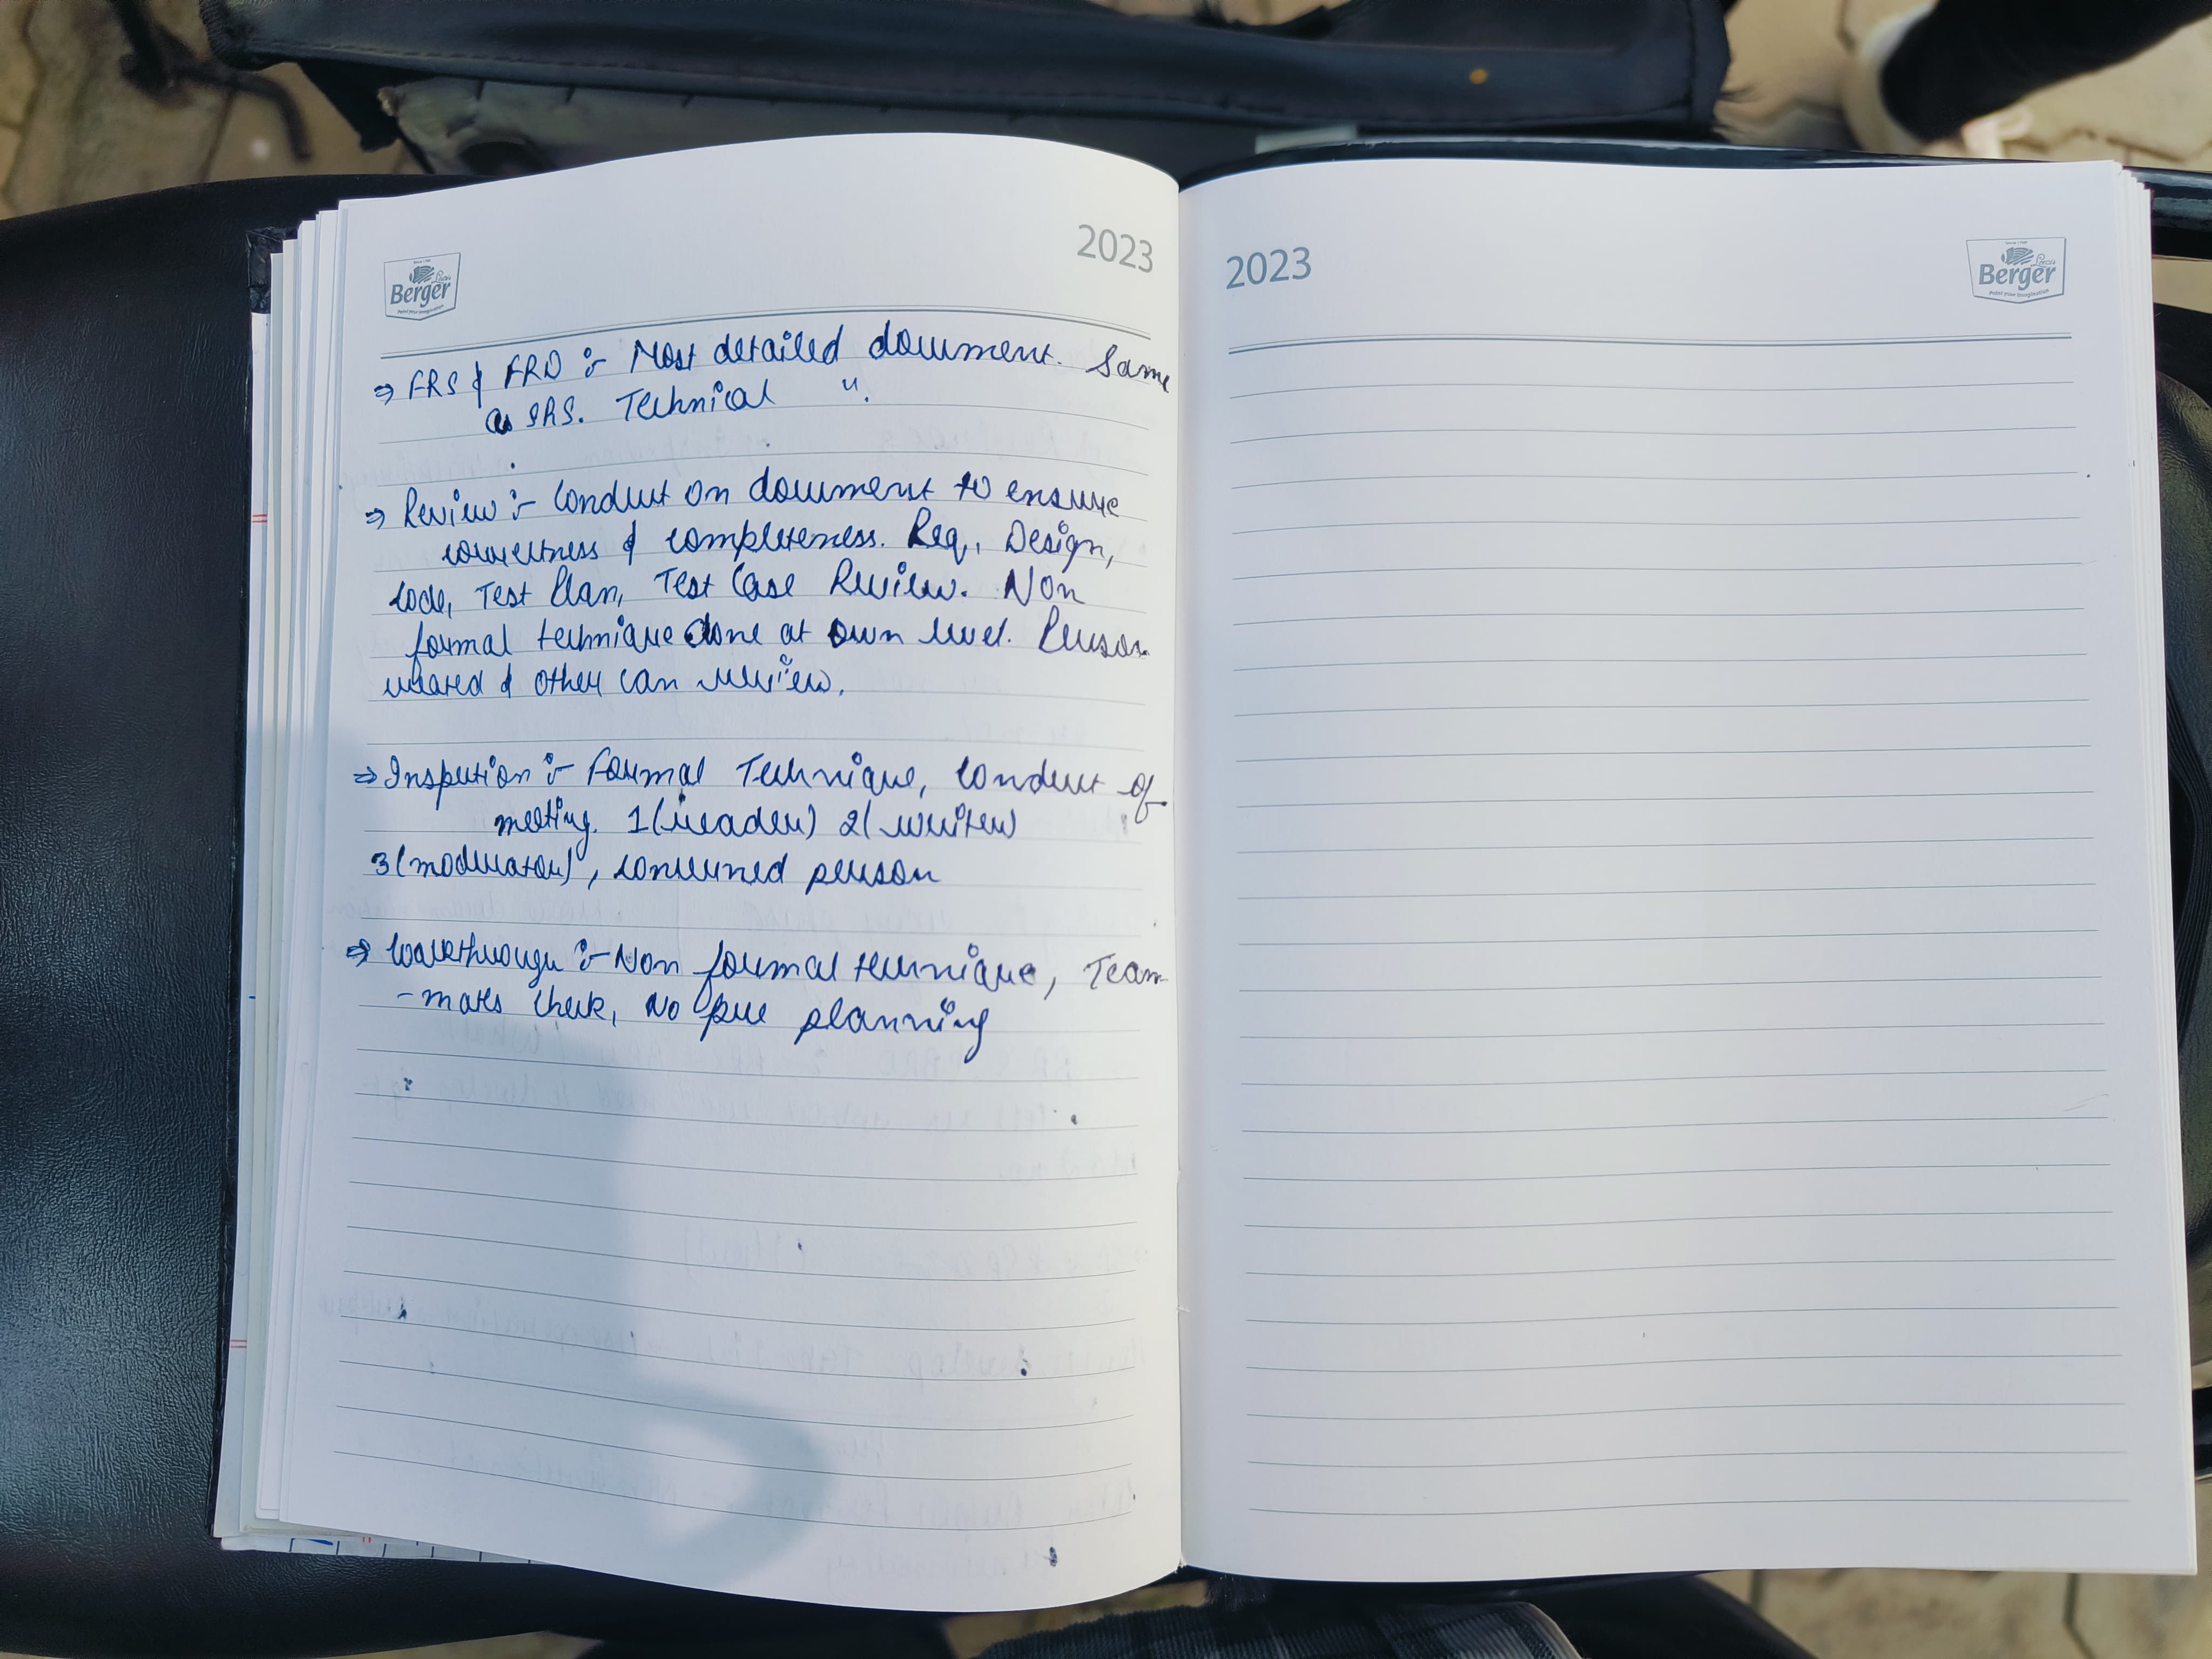 2023
Berger
⇒ FRS & FRD :- Most detailed document. Same
as SRS. Technical ".
⇒ Review :- Conduct on document to ensure
correctness & completeness. Req., Design,
Code, Test Plan, Test Case Review. Non
formal technique done at own level. Person
& other can review.
⇒ Inspection :- Formal Technique, Conduct of
meeting. 1(reader) 2(writer)
3(moderator), concerned person
⇒ Walkthrough :- Non formal technique, Team
-mates check, No pre planning
2023
Berger
Paint your imagination